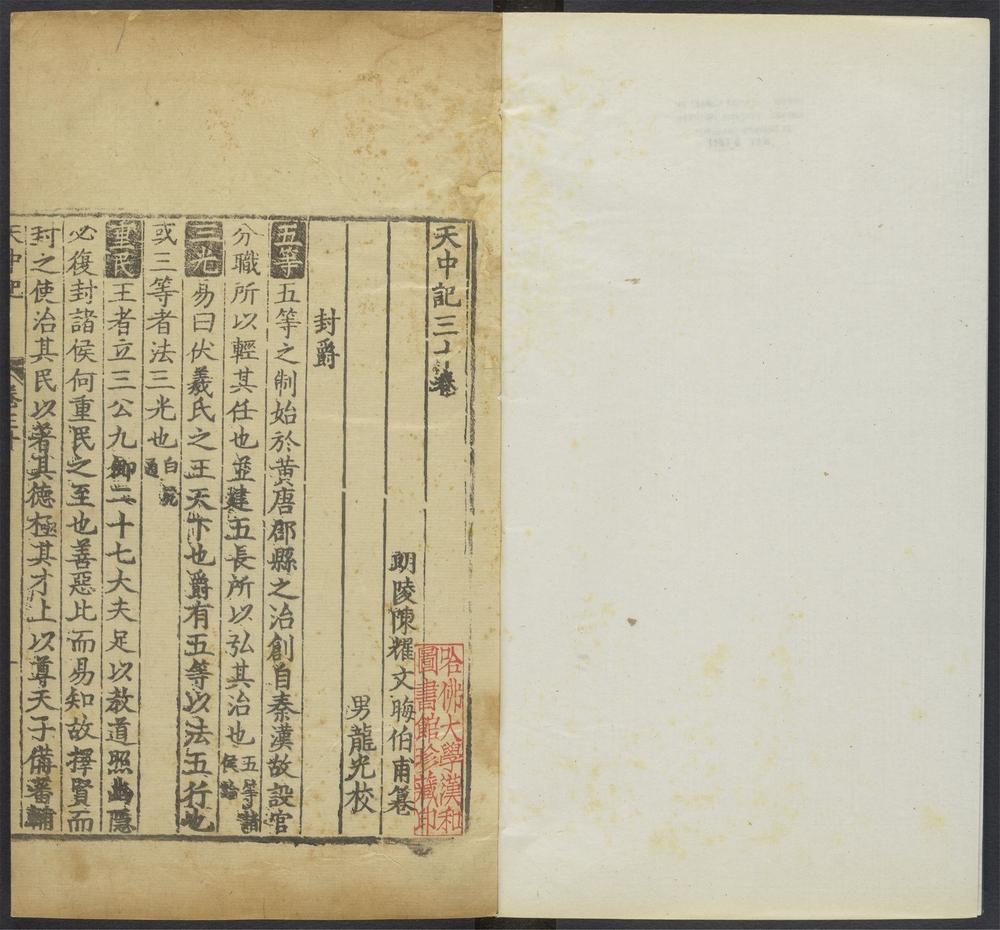 天中記三十卷
朗陵陳耀文晦伯甫纂
男龍光校
封爵
五等五等之制始於黃唐郡縣之治創自秦漢故設官
分職所以輕其任也並建五長所以弘其治也五等諸侯論
三光易曰伏羲氏之王天下也爵有五等以法五行也
或三等者法三光也白虎通
重民王者立三公九卿二十七大夫足以教道照幽隱
必復封諸侯何重民之至也善惡比而易知故擇賢而
封之使治其民以著其德極其才上以尊天子備蕃輔
天中記 卷三十
哈佛大學漢和
圖書館珍藏印